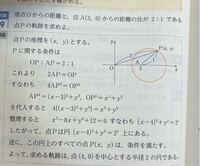 原点Oからの距離と，点A(3, 0)からの距離の比が，2：1である
点Pの軌跡を求めよ。
点Pの座標を(x, y)とする。
Pに関する条件は
OP：AP＝2：1
これより 2AP＝OP
すなわち 4AP²＝OP²
AP²＝(x－3)²＋y², OP²＝x²＋y²
を代入すると 4{(x－3)²＋y²}＝x²＋y²
整理すると x²－8x＋y²＋12＝0 すなわち (x－4)²＋y²＝2²
したがって，点Pは円 (x－4)²＋y²＝2² 上にある。
逆に，この円上のすべての点P(x, y)は，条件を満たす。
よって，求める軌跡は，点(4, 0)を中心とする半径2の円である。
y
P(x, y)
2
1
O
A
3
x